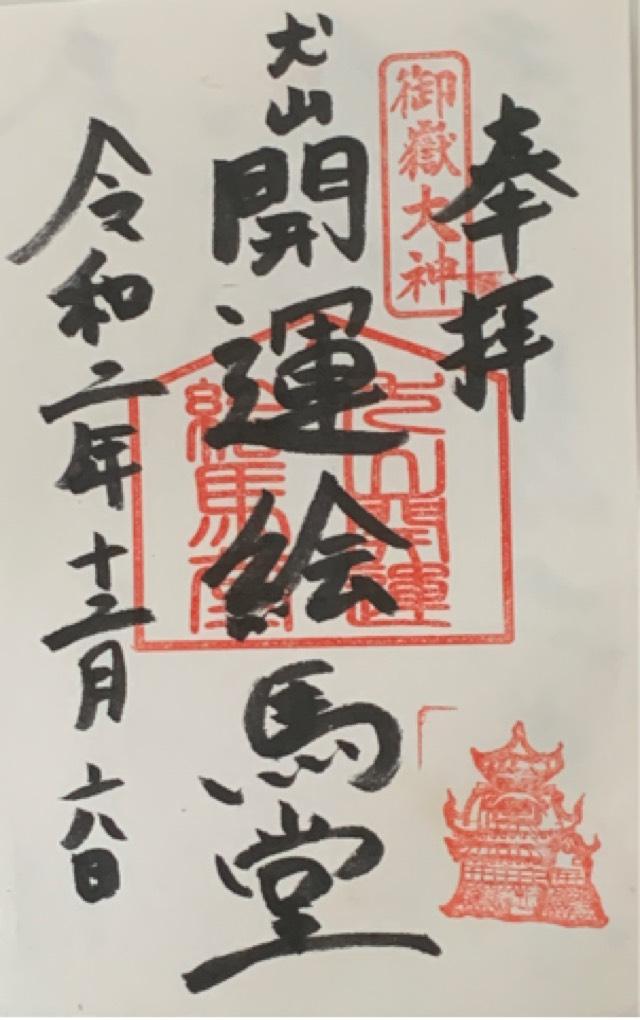 奉拝
御嶽大神
犬山
開運絵馬堂
犬山開運
絵馬堂
令和二年十二月十八日